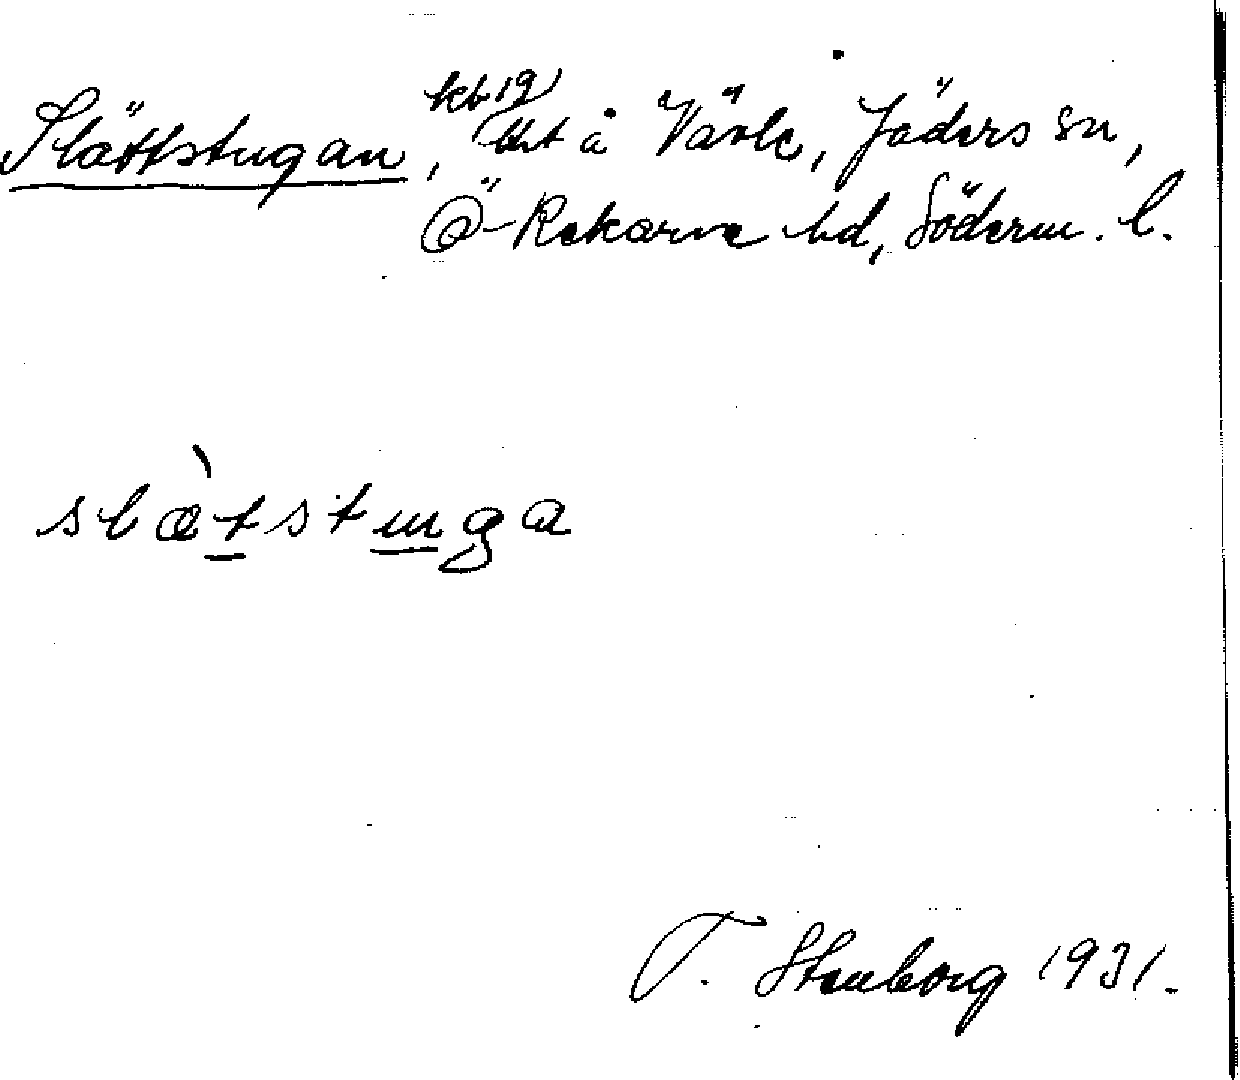 kb 19
Slättstugan, tht å Väsle, Jäders sn,
Ö-Rekarne hd, Söderm. l.
slæ̀tstuga
T. Stenborg 1931.